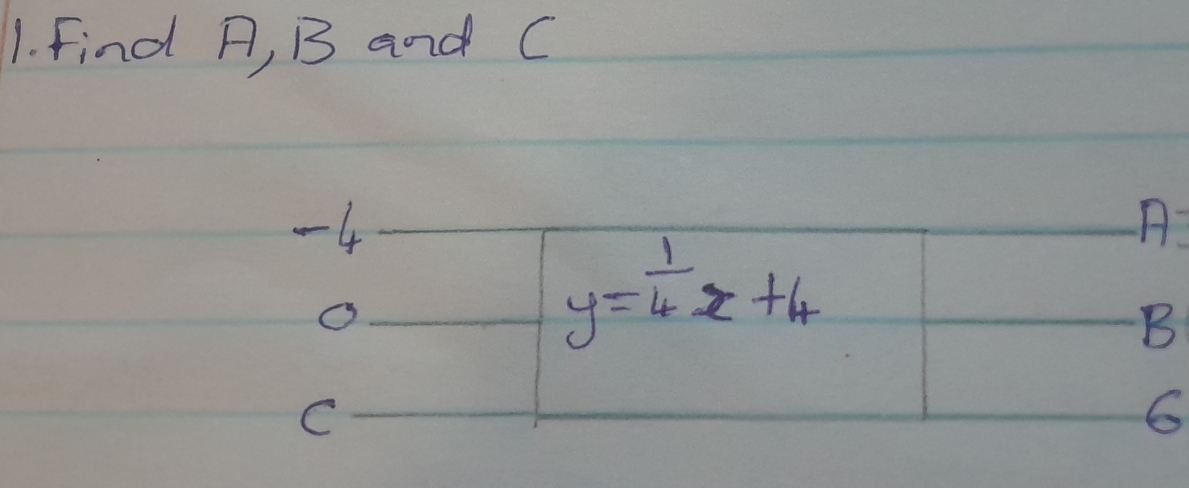 1. Find A, B and C
-4 A=
y = 1/4 x + 4
0 B
C 6